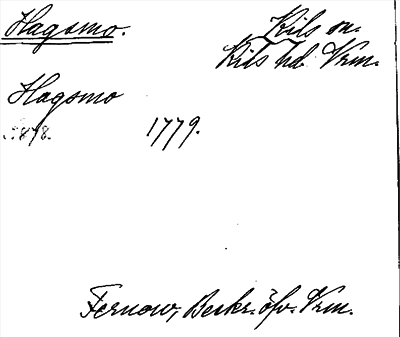 Hagsmo.
Kils sn.
Kils hd Vrm.
Hagsmo
1779.
Fernow, Beskr. öfv. Vrm.